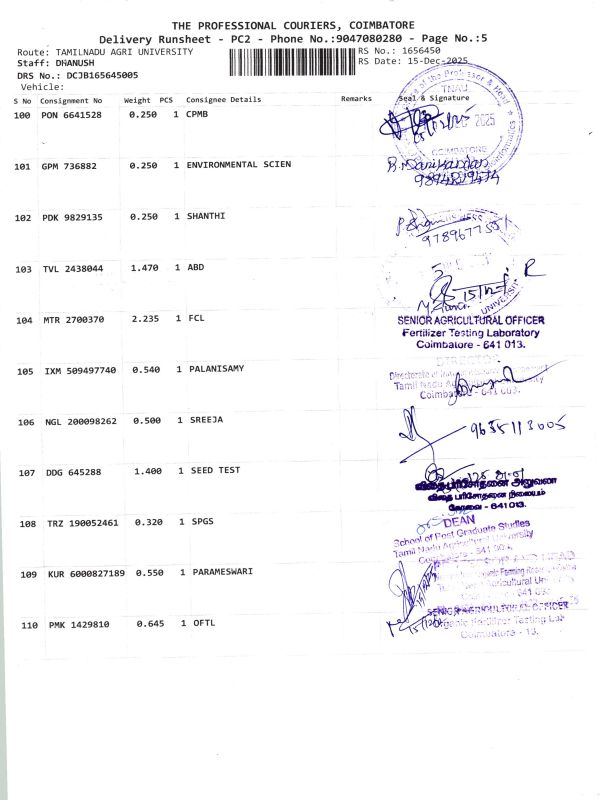 THE PROFESSIONAL COURIERS, COIMBATORE
Delivery Runsheet - PC2 - Phone No.:9047080280 - Page No.:5
Route: TAMILNADU AGRI UNIVERSITY RS No.: 1656450
Staff: DHANUSH RS Date: 15-Dec-2025
DRS No.: DCJB165645005
Vehicle:
S No Consignment No Weight PCS Consignee Details Remarks Seal & Signature
100 PON 6641528 0.250 1 CPMB
TNAU
2025
COIMBATORE
101 GPM 736882 0.250 1 ENVIRONMENTAL SCIEN
102 PDK 9829135 0.250 1 SHANTHI
103 TVL 2438044 1.470 1 ABD
15/12
104 MTR 2700370 2.235 1 FCL
SENIOR AGRICULTURAL OFFICER
Fertilizer Testing Laboratory
Coimbatore - 641 013.
105 IXM 509497740 0.540 1 PALANISAMY
DIRECTOR
Directorate of
Tamil Nadu
Coimbatore - 641 003.
106 NGL 200098262 0.500 1 SREEJA
9655113005
107 DDG 645288 1.400 1 SEED TEST
விதை பரிசோதனை அலுவலர்
விதை பரிசோதனை நிலையம்
கோவை - 641013.
108 TRZ 190052461 0.320 1 SPGS
DEAN
School of Post Graduate Studies
Tamil Nadu Agricultural University
109 KUR 6000827189 0.550 1 PARAMESWARI
110 PMK 1429810 0.645 1 OFTL
SENIOR AGRICULTURAL OFFICER
Organic Fertilizer Testing Lab
Coimbatore - 13.
15/12